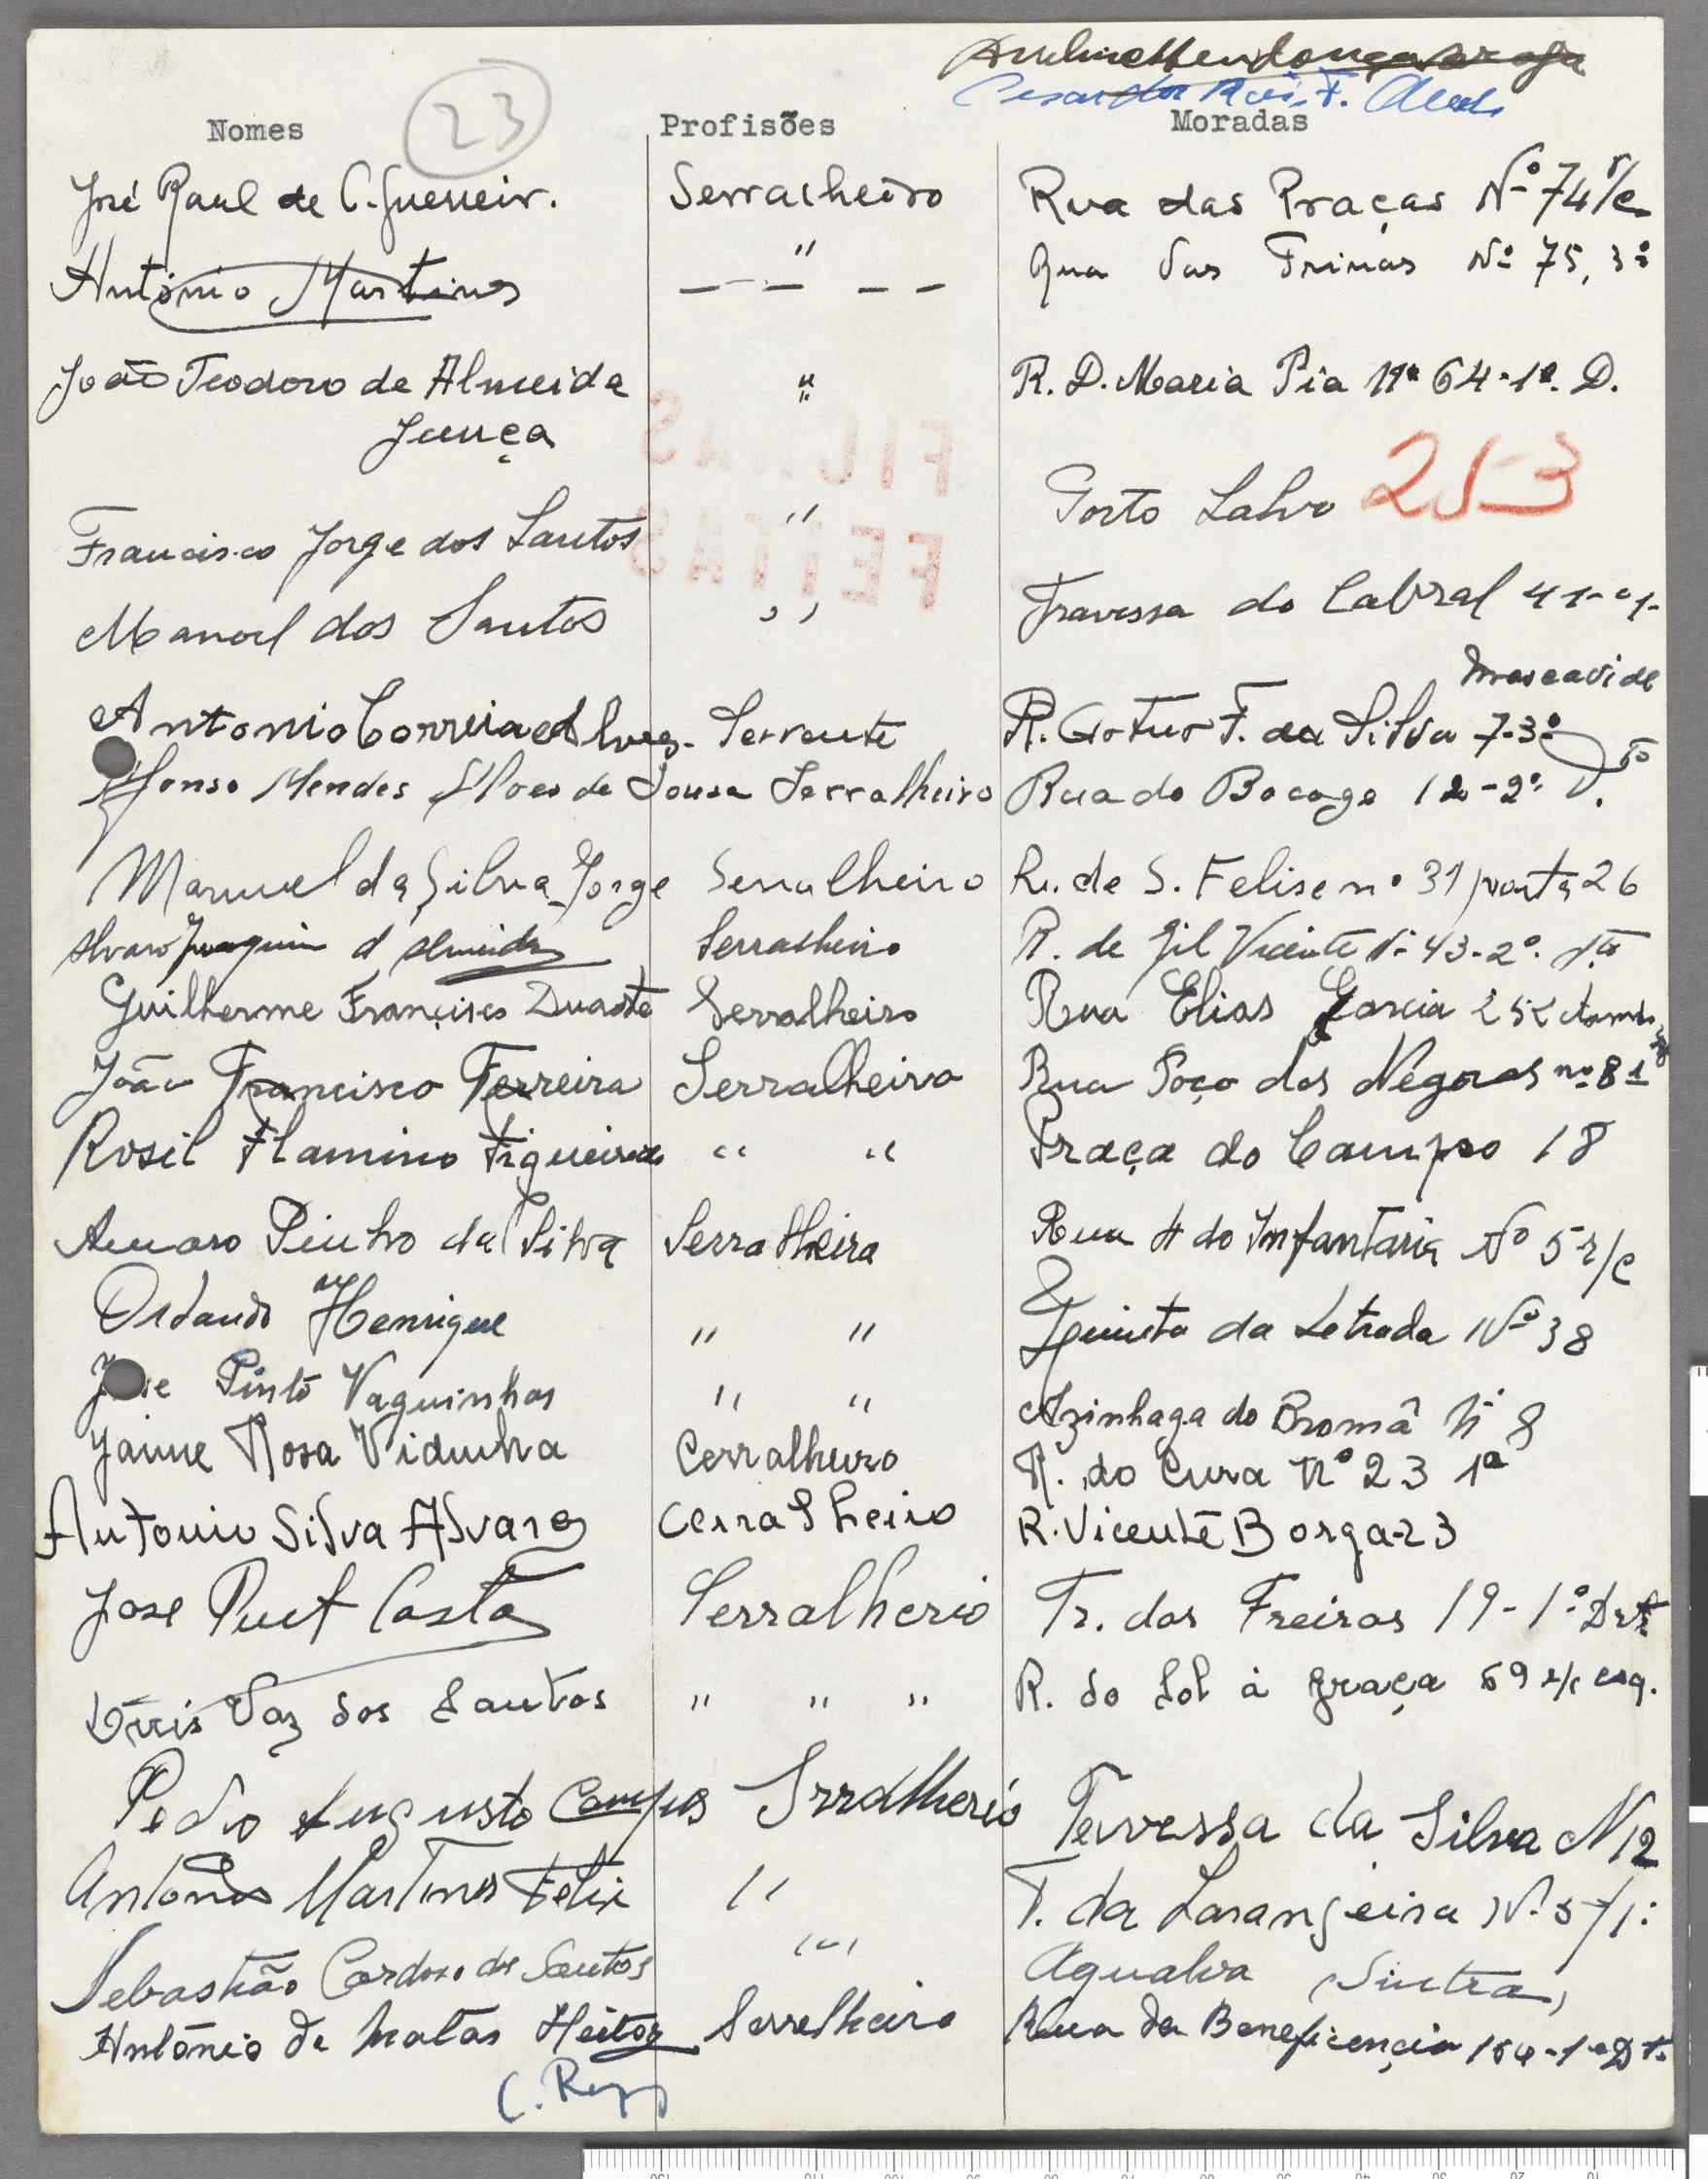 Nomes 23 Profisões Moradas
José Raul de C. Guerreir. Serralheiro Rua das Praças Nº 74 r/c
António Martins — — " — — Rua das Trinas Nº 75, 3º
João Teodoro de Almeida " R. D. Maria Pia nº 64-1º. D.
Junça
253
Francisco Jorge dos Santos " Porto Salvo
FICHAS
FEITAS
Manoel dos Santos " Travessa do Cabral 41-º1-
Moscavide
Antonio Correia Alves - Servente R. Artur F. da Silva 7-3º Dtº
Afonso Mendes Alves de Sousa Serralheiro Rua do Bocage 12-2º D.
Manuel da Silva Jorge Serralheiro R. de S. Felise nº 31 porta 26
Alvaro Joaquim d'Almeida Serralheiro R. de Gil Vicente Nº 43-2º. Dtº
Guilherme Francisco Duarte Serralheiro Rua Elias Garcia 252
João Francisco Ferreira Serralheiro Rua Poço dos Negoros nº 81
Rosil Flamino Figueiredo " " Praça do Campo 18
Amaro Pinho da Silva Serralheiro Rua 4 do Infantaria Nº 5 r/c
Orlando Henrique " " Quinta da Letrada Nº 38
José Pinto Vaquinhas " " Azinhaga do Bromâ Nº 8
Jaime Rosa Vidinha Cerralheiro R. do Cura Nº 23 1º
Antonio Silva Alvares Cerralheiro R. Vicente Borga-23
Jose Puet Costa Serralherio Tr. das Freiras 19-1º Drt
Vaz dos Santos " " " R. do Sol à Graça 69 r/c esq.
Pedro Augusto Campos Srralherio Tavessa da Silva N 12
António Martins Felix " T. da Laranjeira Nº 5-/1º
Sebastião Cardoso dos Santos " Agualva (Sintra)
António de Matos Heitor Serrelheiro Rua da Beneficencia 154-1º Dt.